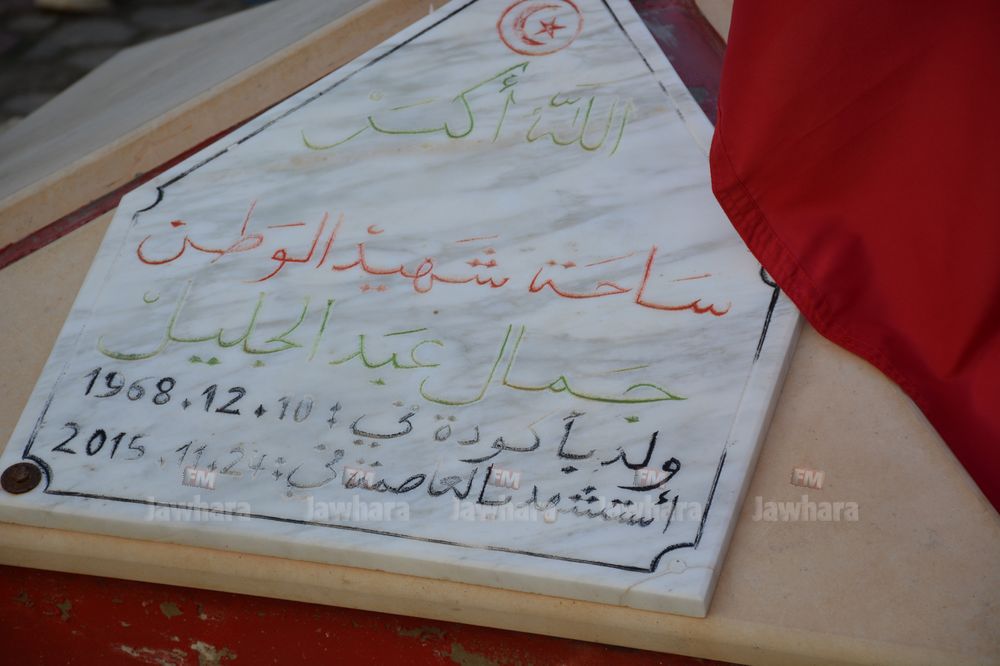 الله أكبر
ساحة شهيد الوطن
جمال عبد الجليل
ولد بأكودة في : 10 . 12 . 1968
أستشهد بالعاصمة في : 24 . 11 . 2015
FM FM FM FM FM
Jawhara Jawhara Jawhara Jawhara Jawhara